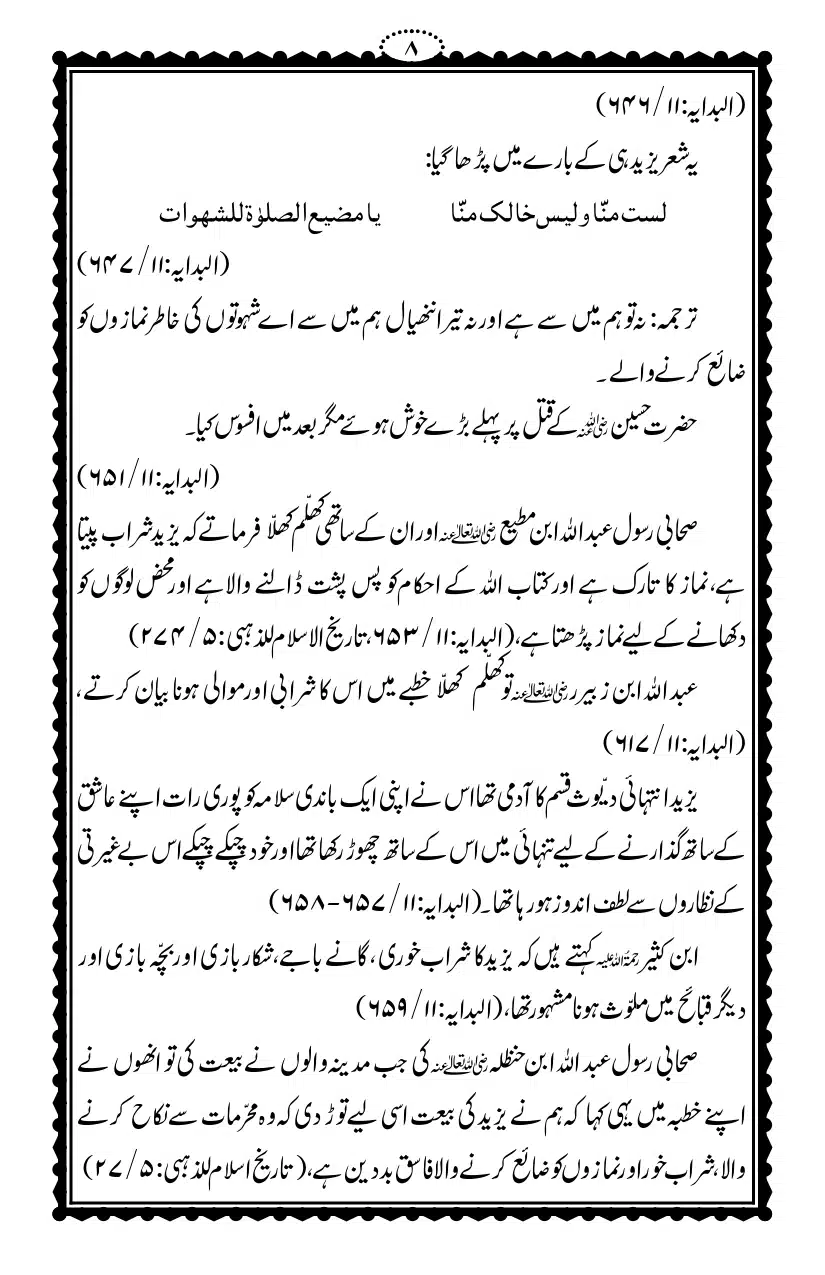 ۸
(البدایہ:۱۱/۶۴۶)
یہ شعر یزید ہی کے بارے میں پڑھا گیا:
لست منّا ولیس خالک منّا یا مضیع الصلوٰۃ للشھوات
(البدایہ:۱۱/۶۴۷)
ترجمہ: نہ تو ہم میں سے ہے اور نہ تیرا ننھیال ہم میں سے اے شہوتوں کی خاطر نمازوں کو
ضائع کرنے والے۔
حضرت حسین رضی اللہ عنہ کے قتل پر پہلے بڑے خوش ہوئے مگر بعد میں افسوس کیا۔
(البدایہ:۱۱/۶۵۱)
صحابی رسول عبد اللہ ابن مطیع رضی اللہ تعالیٰ عنہ اور ان کے ساتھی کھلّم کھلّا فرماتے کہ یزید شراب پیتا
ہے، نماز کا تارک ہے اور کتاب اللہ کے احکام کو پس پشت ڈالنے والا ہے اور محض لوگوں کو
دکھانے کے لیے نماز پڑھتا ہے، (البدایہ:۱۱/۶۵۳، تاریخ الاسلام للذہبی:۵/۲۷۴)
عبد اللہ ابن زبیرر رضی اللہ تعالیٰ عنہ تو کھلّم کھلّا خطبے میں اس کا شرابی اور موالی ہونا بیان کرتے،
(البدایہ:۱۱/۶۱۷)
یزید انتہائی دیّوث قسم کا آدمی تھا اس نے اپنی ایک باندی سلامہ کو پوری رات اپنے عاشق
کے ساتھ گذارنے کے لیے تنہائی میں اس کے ساتھ چھوڑ رکھا تھا اور خود چپکے چپکے اس بے غیرتی
کے نظاروں سے لطف اندوز ہو رہا تھا۔ (البدایہ:۱۱/۶۵۷-۶۵۸)
ابن کثیر رحمۃ اللہ علیہ کہتے ہیں کہ یزید کا شراب خوری، گانے باجے، شکار بازی اور بچّہ بازی اور
دیگر قبائح میں ملوّث ہونا مشہور تھا، (البدایہ:۱۱/۶۵۹)
صحابی رسول عبد اللہ ابن حنظلہ رضی اللہ تعالیٰ عنہ کی جب مدینہ والوں نے بیعت کی تو انھوں نے
اپنے خطبہ میں یہی کہا کہ ہم نے یزید کی بیعت اسی لیے توڑ دی کہ وہ محرّمات سے نکاح کرنے
والا، شراب خور اور نمازوں کو ضائع کرنے والا فاسق بد دین ہے، (تاریخ اسلام للذہبی:۵/۲۷)